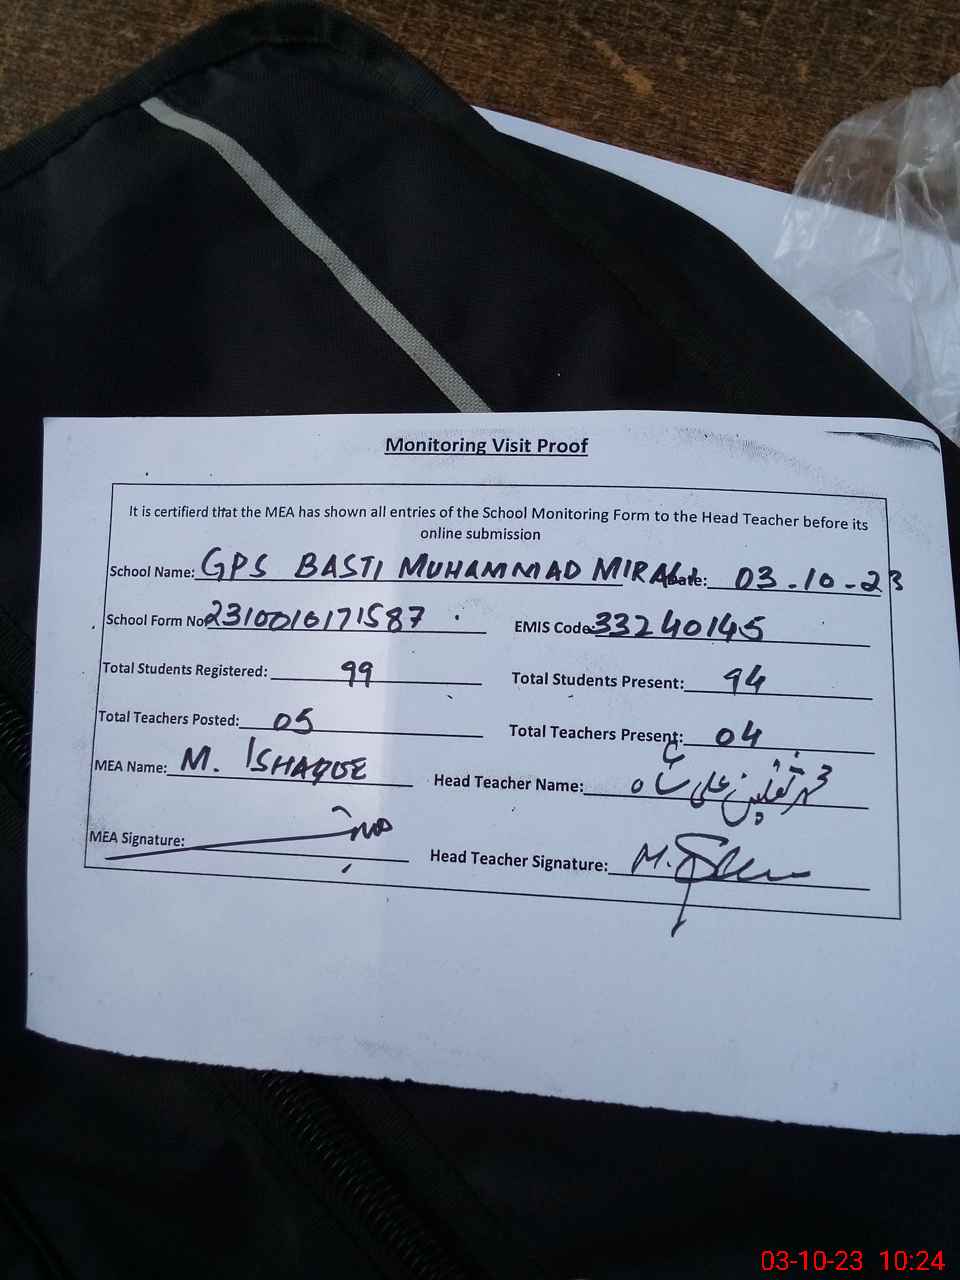 Monitoring Visit Proof
It is certifierd that the MEA has shown all entries of the School Monitoring Form to the Head Teacher before its
online submission
School Name: GPS BASTI MUHAMMAD MIRALI Date: 03-10-23
School Form No 2310010171587 EMIS Code: 33240145
Total Students Registered: 99 Total Students Present: 94
Total Teachers Posted: 05 Total Teachers Present: 04
MEA Name: M. ISHAQUE Head Teacher Name: محمد ثقلین علی شاہ
MEA Signature: Head Teacher Signature: M.
03-10-23 10:24